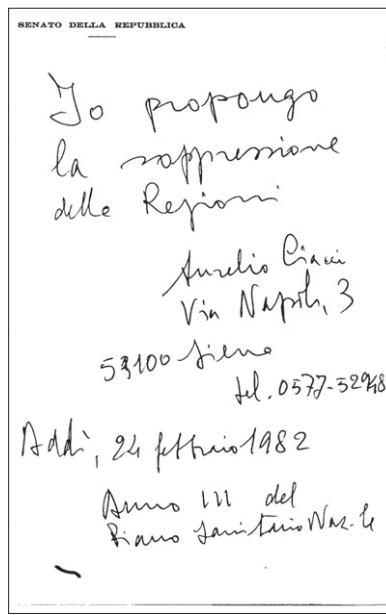 SENATO DELLA REPUBBLICA
Io propongo
la soppressione
delle Regioni
Aurelio Ciacci
Via Napoli, 3
53100 Siena
tel. 0577-52948
Addì, 24 febbraio 1982
Anno III del
Piano Sanitario Naz.le